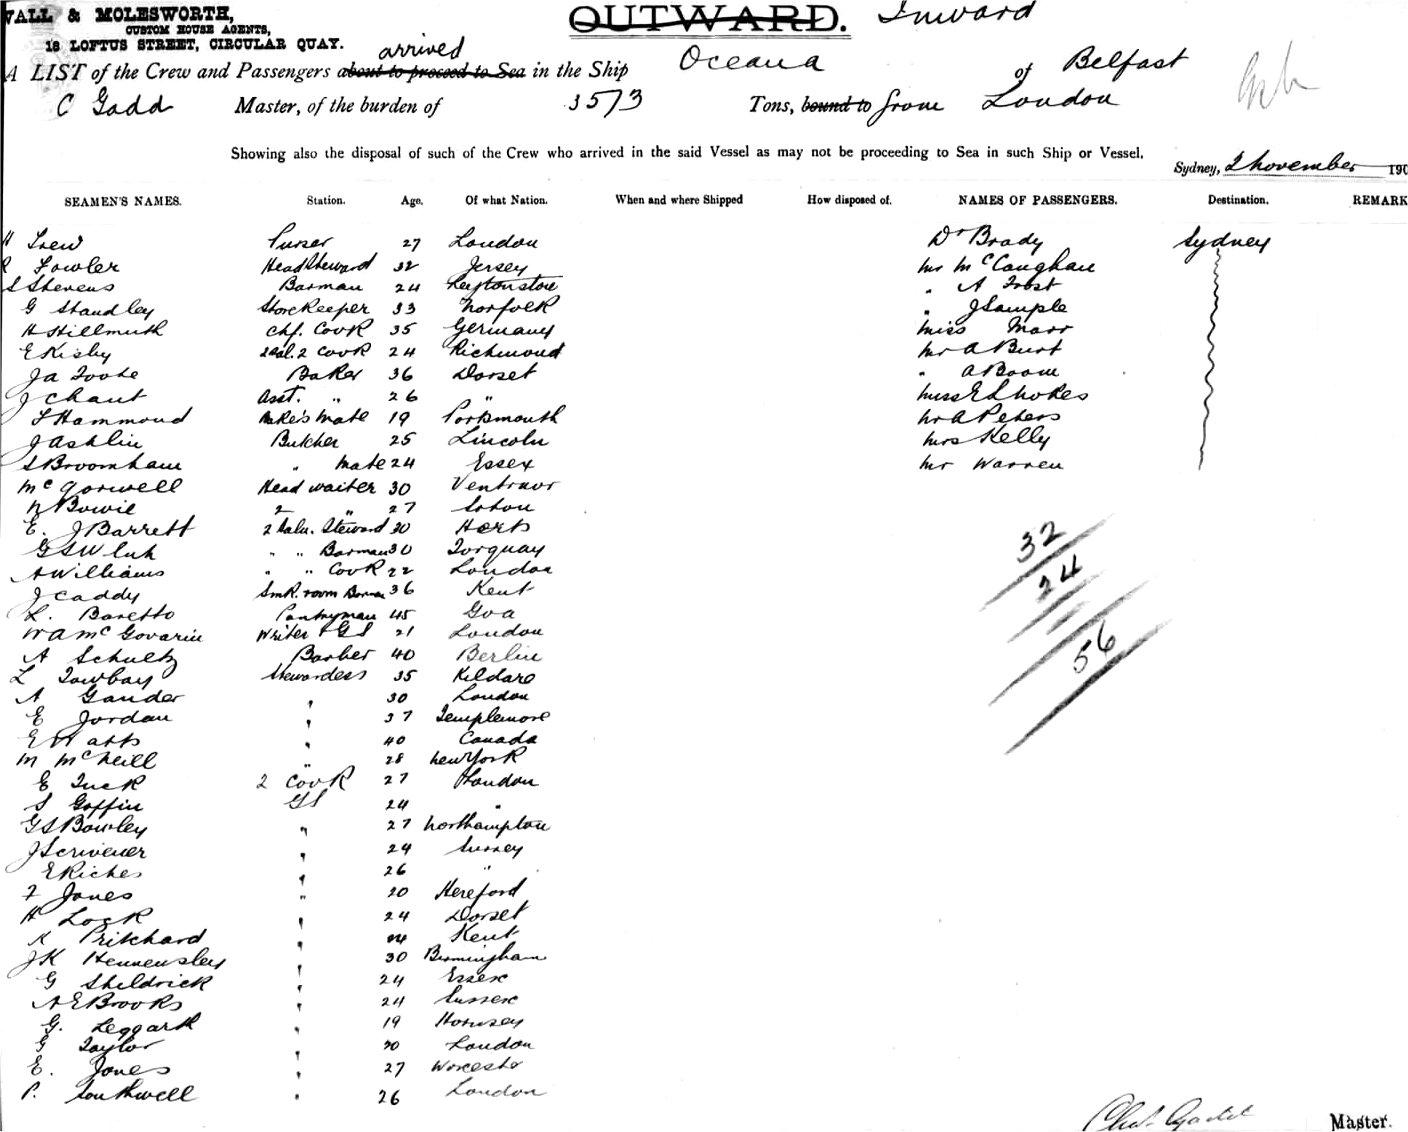 WALL & MOLESWORTH,
CUSTOM HOUSE AGENTS,
18 LOFTUS STREET, CIRCULAR QUAY.
OUTWARD. Inward
arrived
A LIST of the Crew and Passengers about to proceed to Sea in the Ship Oceana of Belfast
C Gadd Master, of the burden of 3573 Tons, bound to from London
Showing also the disposal of such of the Crew who arrived in the said Vessel as may not be proceeding to Sea in such Ship or Vessel.
Sydney, 2 November 190
SEAMEN'S NAMES. Station. Age. Of what Nation. When and where Shipped How disposed of. NAMES OF PASSENGERS. Destination. REMARK
H Trew Purser 27 London Dr Brady Sydney
R Fowler Head Steward 32 Jersey Mr McCaughan
S Stevens Barman 24 Leytonstone " A Frost
G Standley Storekeeper 33 Norfolk " J Sample
H Hillmuth Chf. Cook 35 Germany Miss Marr
E Risby 2 Sal. 2 Cook 24 Richmond Mr A Burt
Ja Toode Baker 36 Dorset " A Boom
J Chant Asst. " 26 " Miss E Shokes
F Hammond Bake's Mate 19 Portsmouth Mr A Peters
J Ashlin Butcher 25 Lincoln Mrs Kelly
S Broomham " Mate 24 Essex Mr Warren
Mc Gorwell Head waiter 30 Ventnor
N Bowie 2 " 27
E. J Barrett 2 Saln. Steward 30 Herts
" " Barman 30 Torquay
A Williams " " Cook 22 London
J Caddy Smk. room Barman 36 Kent
L. Baretto Pantryman 45 Goa
W A McGovarin Writer & GS 21 London
A Schultz Barber 40 Berlin
L Towbay Stewardess 35 Kildare
A Gander " 30 London
E Jordan " 37 Templemore
E Watts " 40 Canada
M McNeill " 28 New York
E Tuck 2 Cook 27 London
S Goffin GS 24 "
G S Bowley " 27 Northampton
J Scrivener " 24 Surrey
E Riches " 26 "
F Jones " 20 Hereford
H Lock " 24 Dorset
K Pritchard " Kent
J K Hennensley " 30 Birmingham
G Sheldrick " 24 Essex
A E Brooks " 24 Sussex
G. Leggart " 19 Hornsey
G Taylor " 20 London
E. Jones " 27 Worcester
P. Southwell " 26 London
32
24
56
Chas Gadd Master.